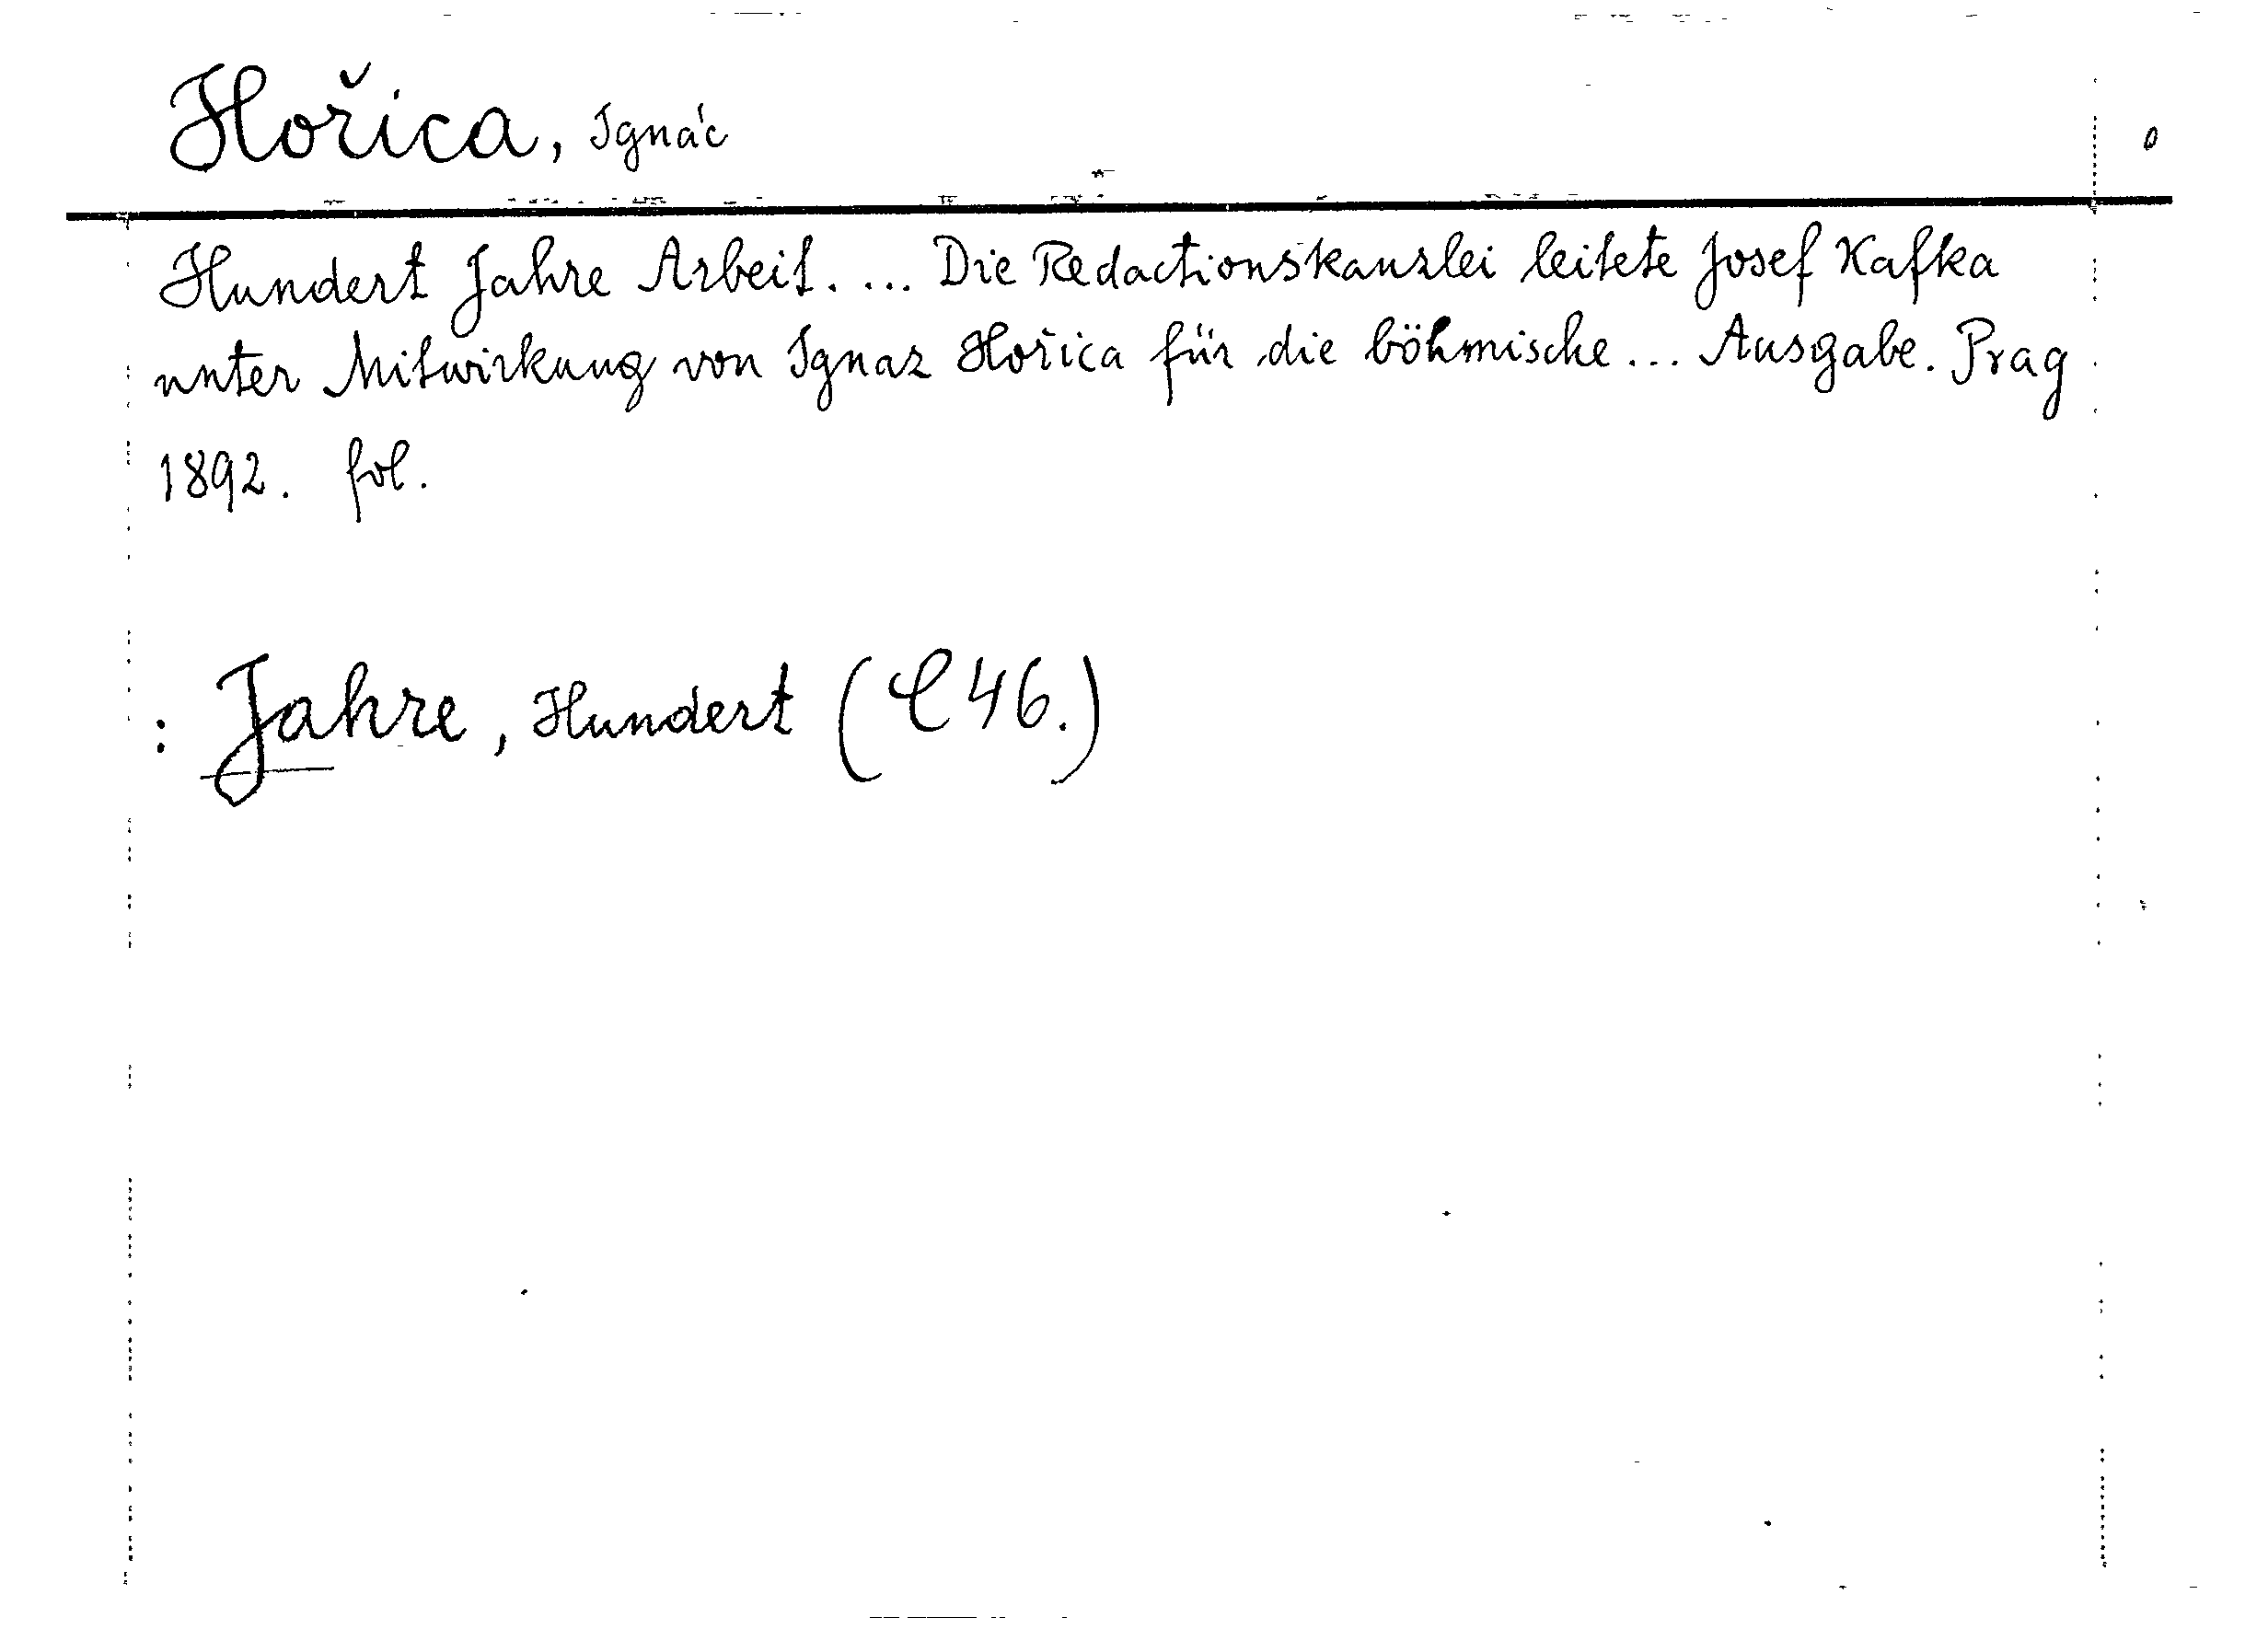 Hořica, Ignác
Hundert Jahre Arbeit. ... Die Redactionskanzlei leitete Josef Kafka
unter Mitwirkung von Ignaz Hořica für die böhmische ... Ausgabe. Prag
1892. fol.
: Jahre, Hundert (C 46.)